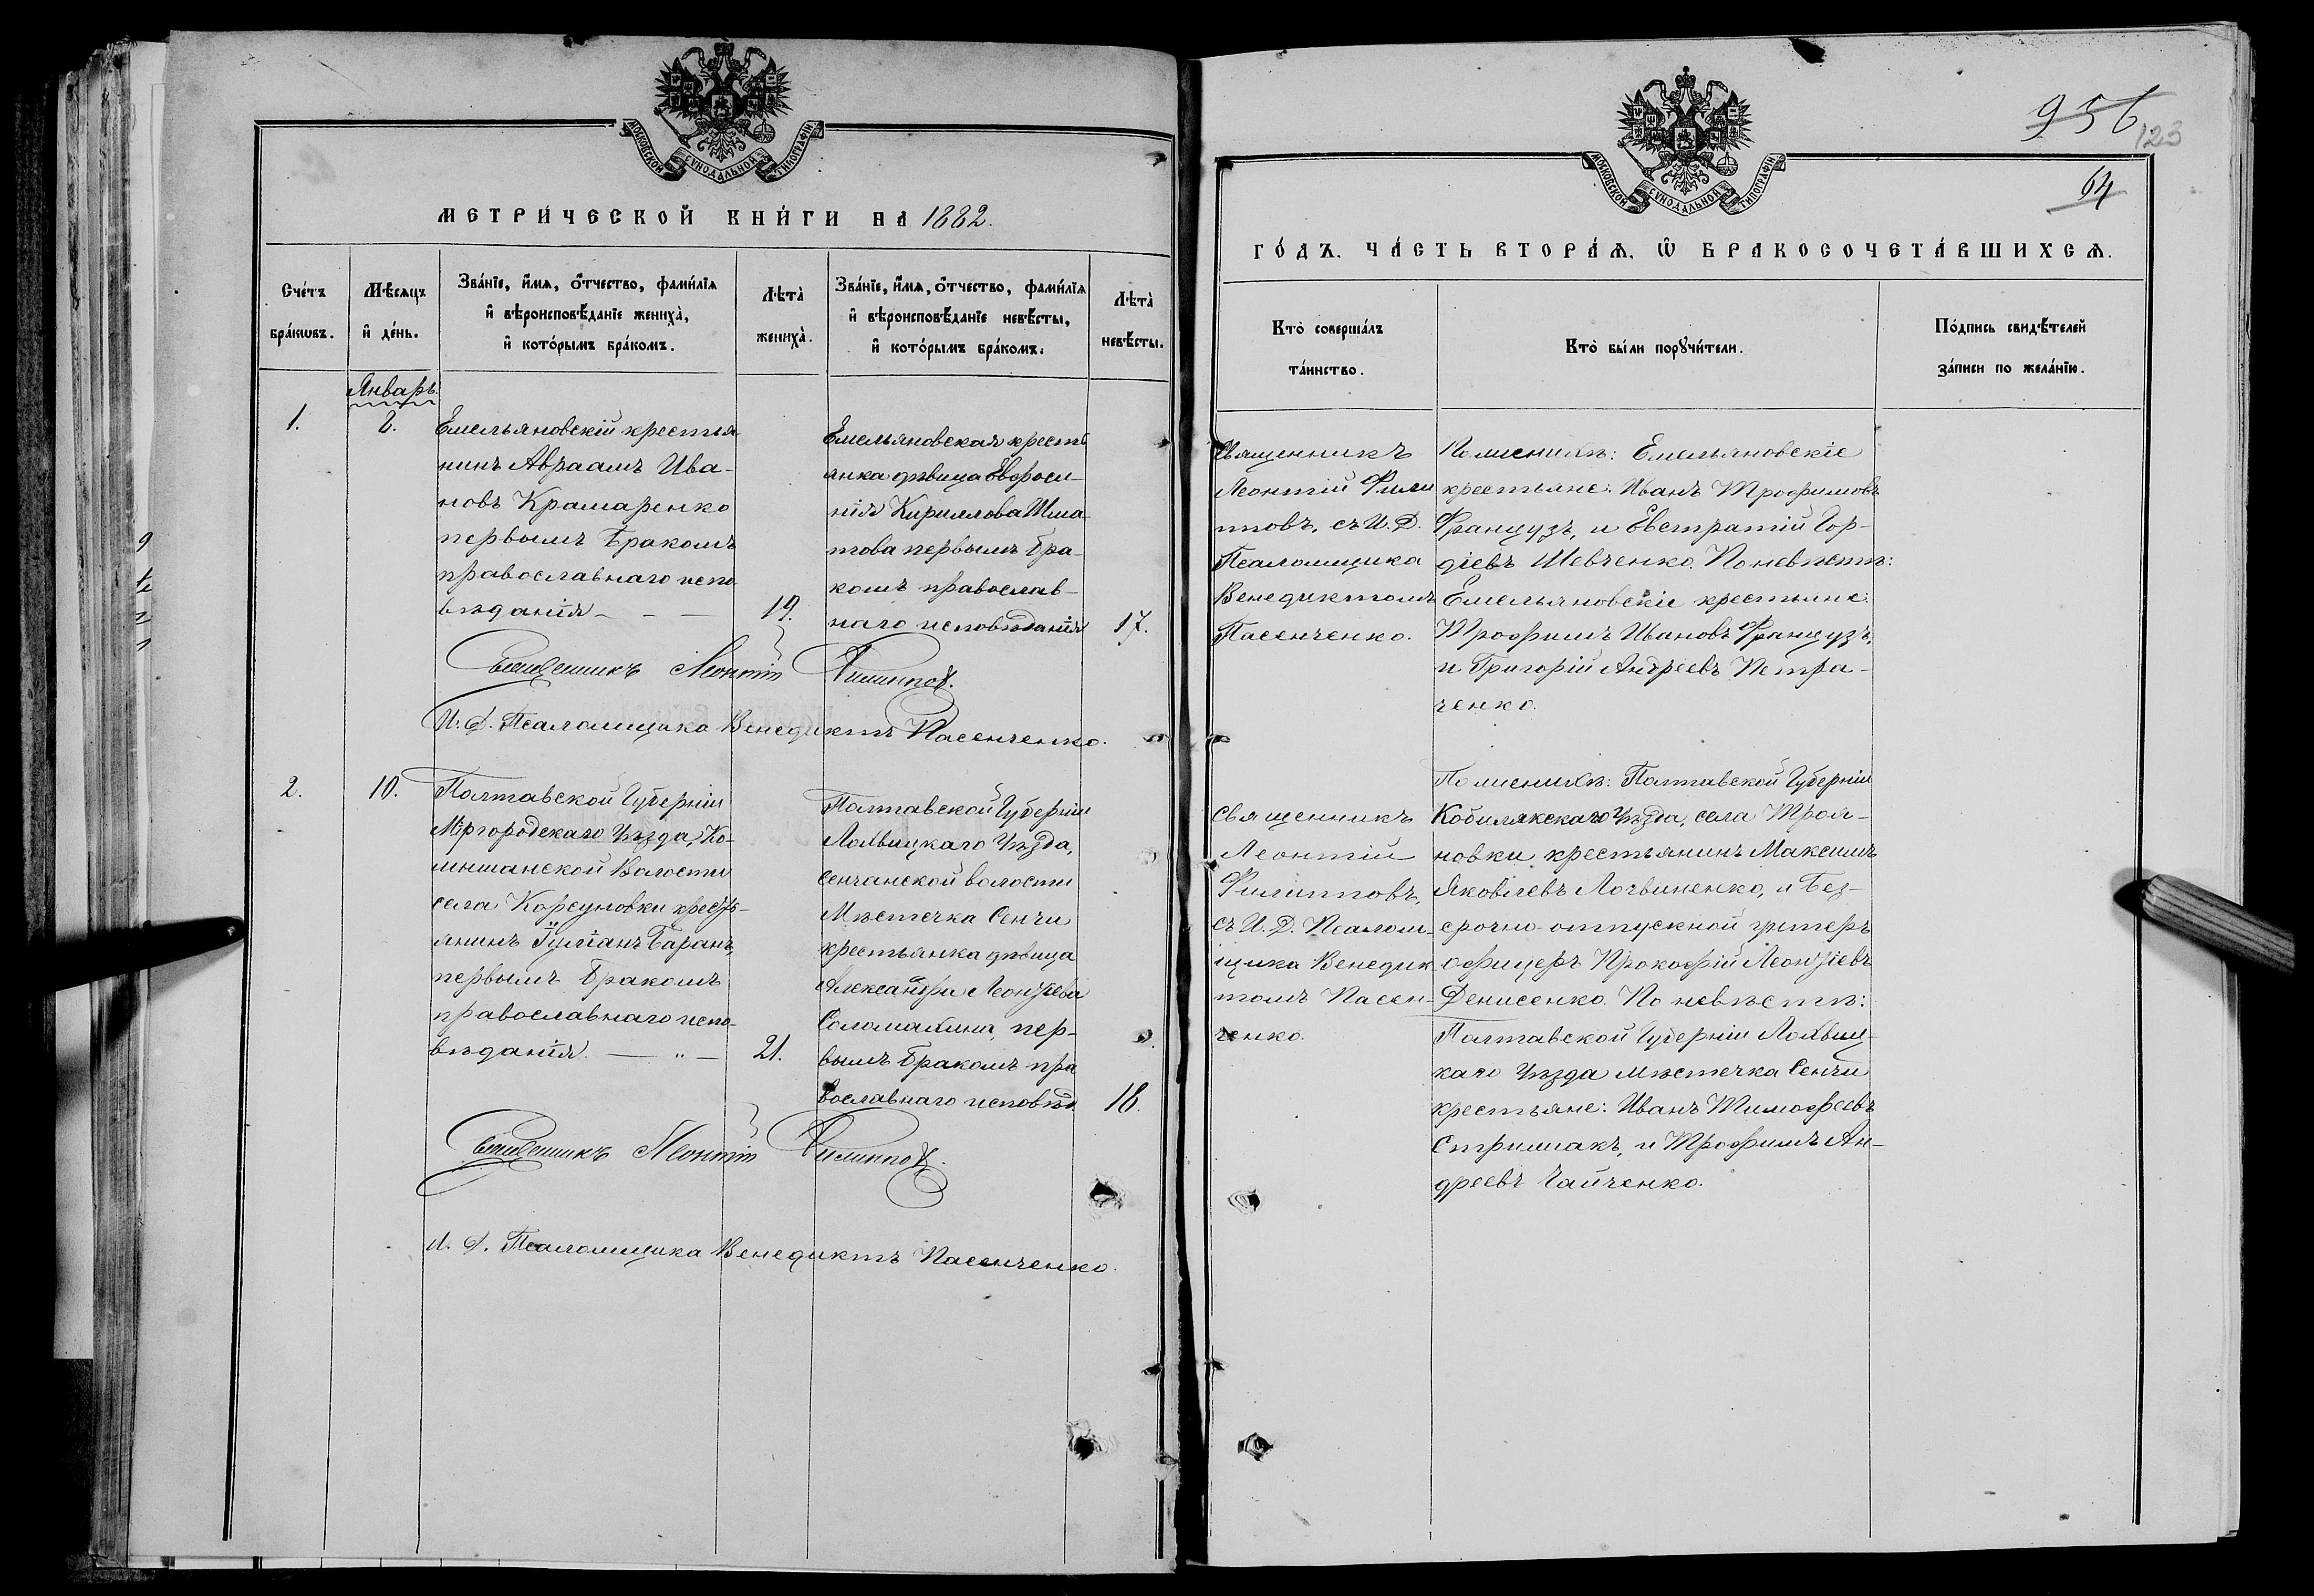 МОСКОВСКОЙ СУНОДАЛЬНОЙ ТИПОГРАФІИ.
МЕТРИ́ЧЕСКОЙ КНИ́ГИ НА 1882.
Сче́тъ бра́кωвъ.
Мѣсяцъ и҆ де́нь.
Зва́нїе, и҆́мѧ, ѻ҆́тчество, фами́лїѧ
и҆ вѣроисповѣ́данїе жениха̀,
и҆ кото́рымъ бра́комъ.
Лѣта̀ жениха̀.
Зва́нїе, и҆́мѧ, ѻ҆́тчество, фами́лїѧ
и҆ вѣроисповѣ́данїе невѣ́сты,
и҆ кото́рымъ бра́комъ.
Лѣта̀ невѣ́сты.
Январь.
1.
2.
Емельяновскій крестья
нинъ Авраамъ Ива-
новъ Крамаренко
первымъ бракомъ
православнаго испо
вѣданія — —
19.
Емельяновская кресть
янка дѣвица Евфроси-
нія Кириллова Шма-
това первымъ бра-
комъ православ-
наго исповѣданія
17.
Священникъ Леонтій Филиппов.
И. д. Псаломщика Венедиктъ Пасенченко.
2.
10.
Полтавской Губерніи
Миргородскаго Уѣзда, Ко-
мишанской Волости
села Корсуновки кресть-
янинъ Іуліанъ Баранъ,
первымъ бракомъ
православнаго испо-
вѣданія. — „ —
21.
Полтавской Губерніи
Лохвицкаго Уѣзда,
Сенчанской волости
Мѣстечка Сенчи
крестьянка дѣвица
Александра Леонтьева
Соломахина, пер-
вымъ бракомъ пра
вославнаго исповѣд
18.
Священникъ Леонтій Филиппов.
И. д. Псаломщика Венедиктъ Пасенченко.
956
123
64
МОСКОВСКОЙ СУНОДАЛЬНОЙ ТИПОГРАФІИ
ГО́ДЪ. ЧА́СТЬ ВТОРА́Ѧ, Ѡ҆ БРАКОСОЧЕТА́ВШИХСѦ.
Кто̀ соверша́лъ
та́инство.
Кто̀ бы́ли порꙋчи́тели.
По́дпись свидѣ́телей
за́писи по жела́нїю.
Священникъ
Леонтій Фили
пповъ, съ И. Д.
Псаломщика
Венедиктомъ
Пасенченко.
По женихѣ: Емельяновскіе
крестьяне: Иванъ Трофимовъ
Французъ, и Евстратій Гор-
діевъ Шевченко. По невѣстѣ:
Емельяновскіе крестьяне:
Трофимъ Ивановъ Французъ,
и Григорій Андреевъ Петра-
ченко.
Священникъ
Леонтій
Филипповъ,
съ И. Д. Псалом-
щика Венедик
томъ Пасен-
ченко.
По женихѣ: Полтавской Губерніи
Кобилякскаго Уѣзда, села Троя-
новки крестьянинъ Максимъ
Яковлевъ Логвиненко, и без-
срочно-отпускной унтеръ
офицеръ Прокофій Леонтіевъ
Денисенко. По невѣстѣ:
Полтавской Губерніи Лохвиц-
каго Уѣзда мѣстечка Сенчи
крестьяне: Иванъ Тимофеевъ
Стрижакъ, и Трофимъ Ан-
дреевъ Чайченко.